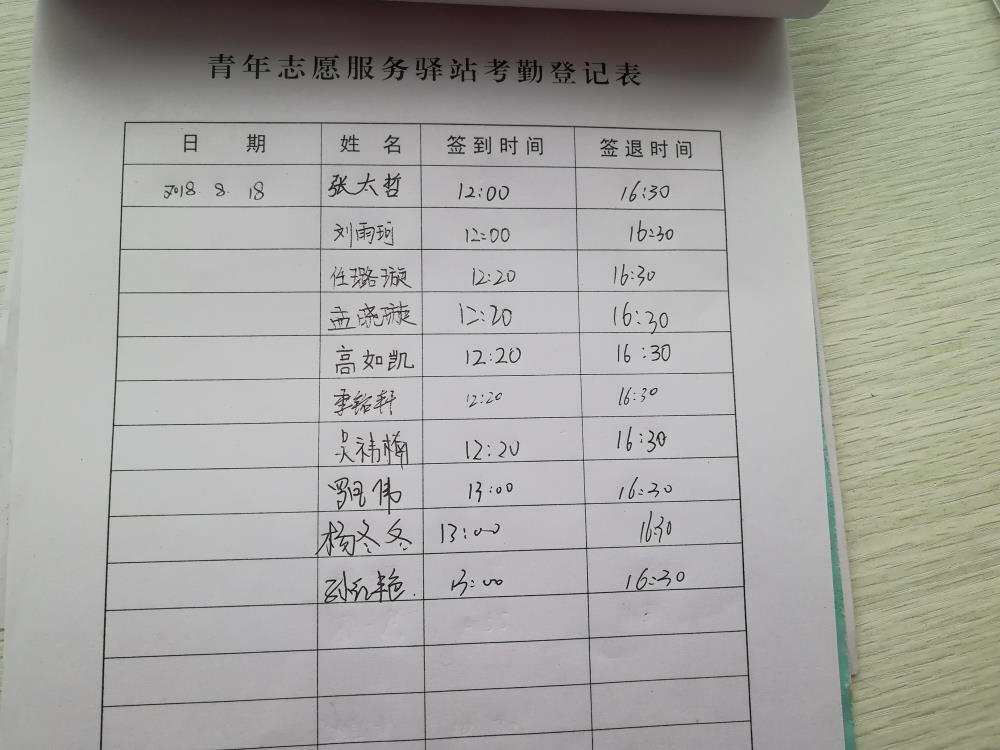 青年志愿服务驿站考勤登记表
日 期 姓 名 签到时间 签退时间
2018.8.18 张大哲 12:00 16:30
刘雨珂 12:00 16:30
任璐璇 12:20 16:30
孟晓璇 12:20 16:30
高如凯 12:20 16:30
李铭轩 12:20 16:30
吴祎楠 12:20 16:30
伟 13:00 16:30
杨冬冬 13:00 16:30
孙红艳 13:00 16:30